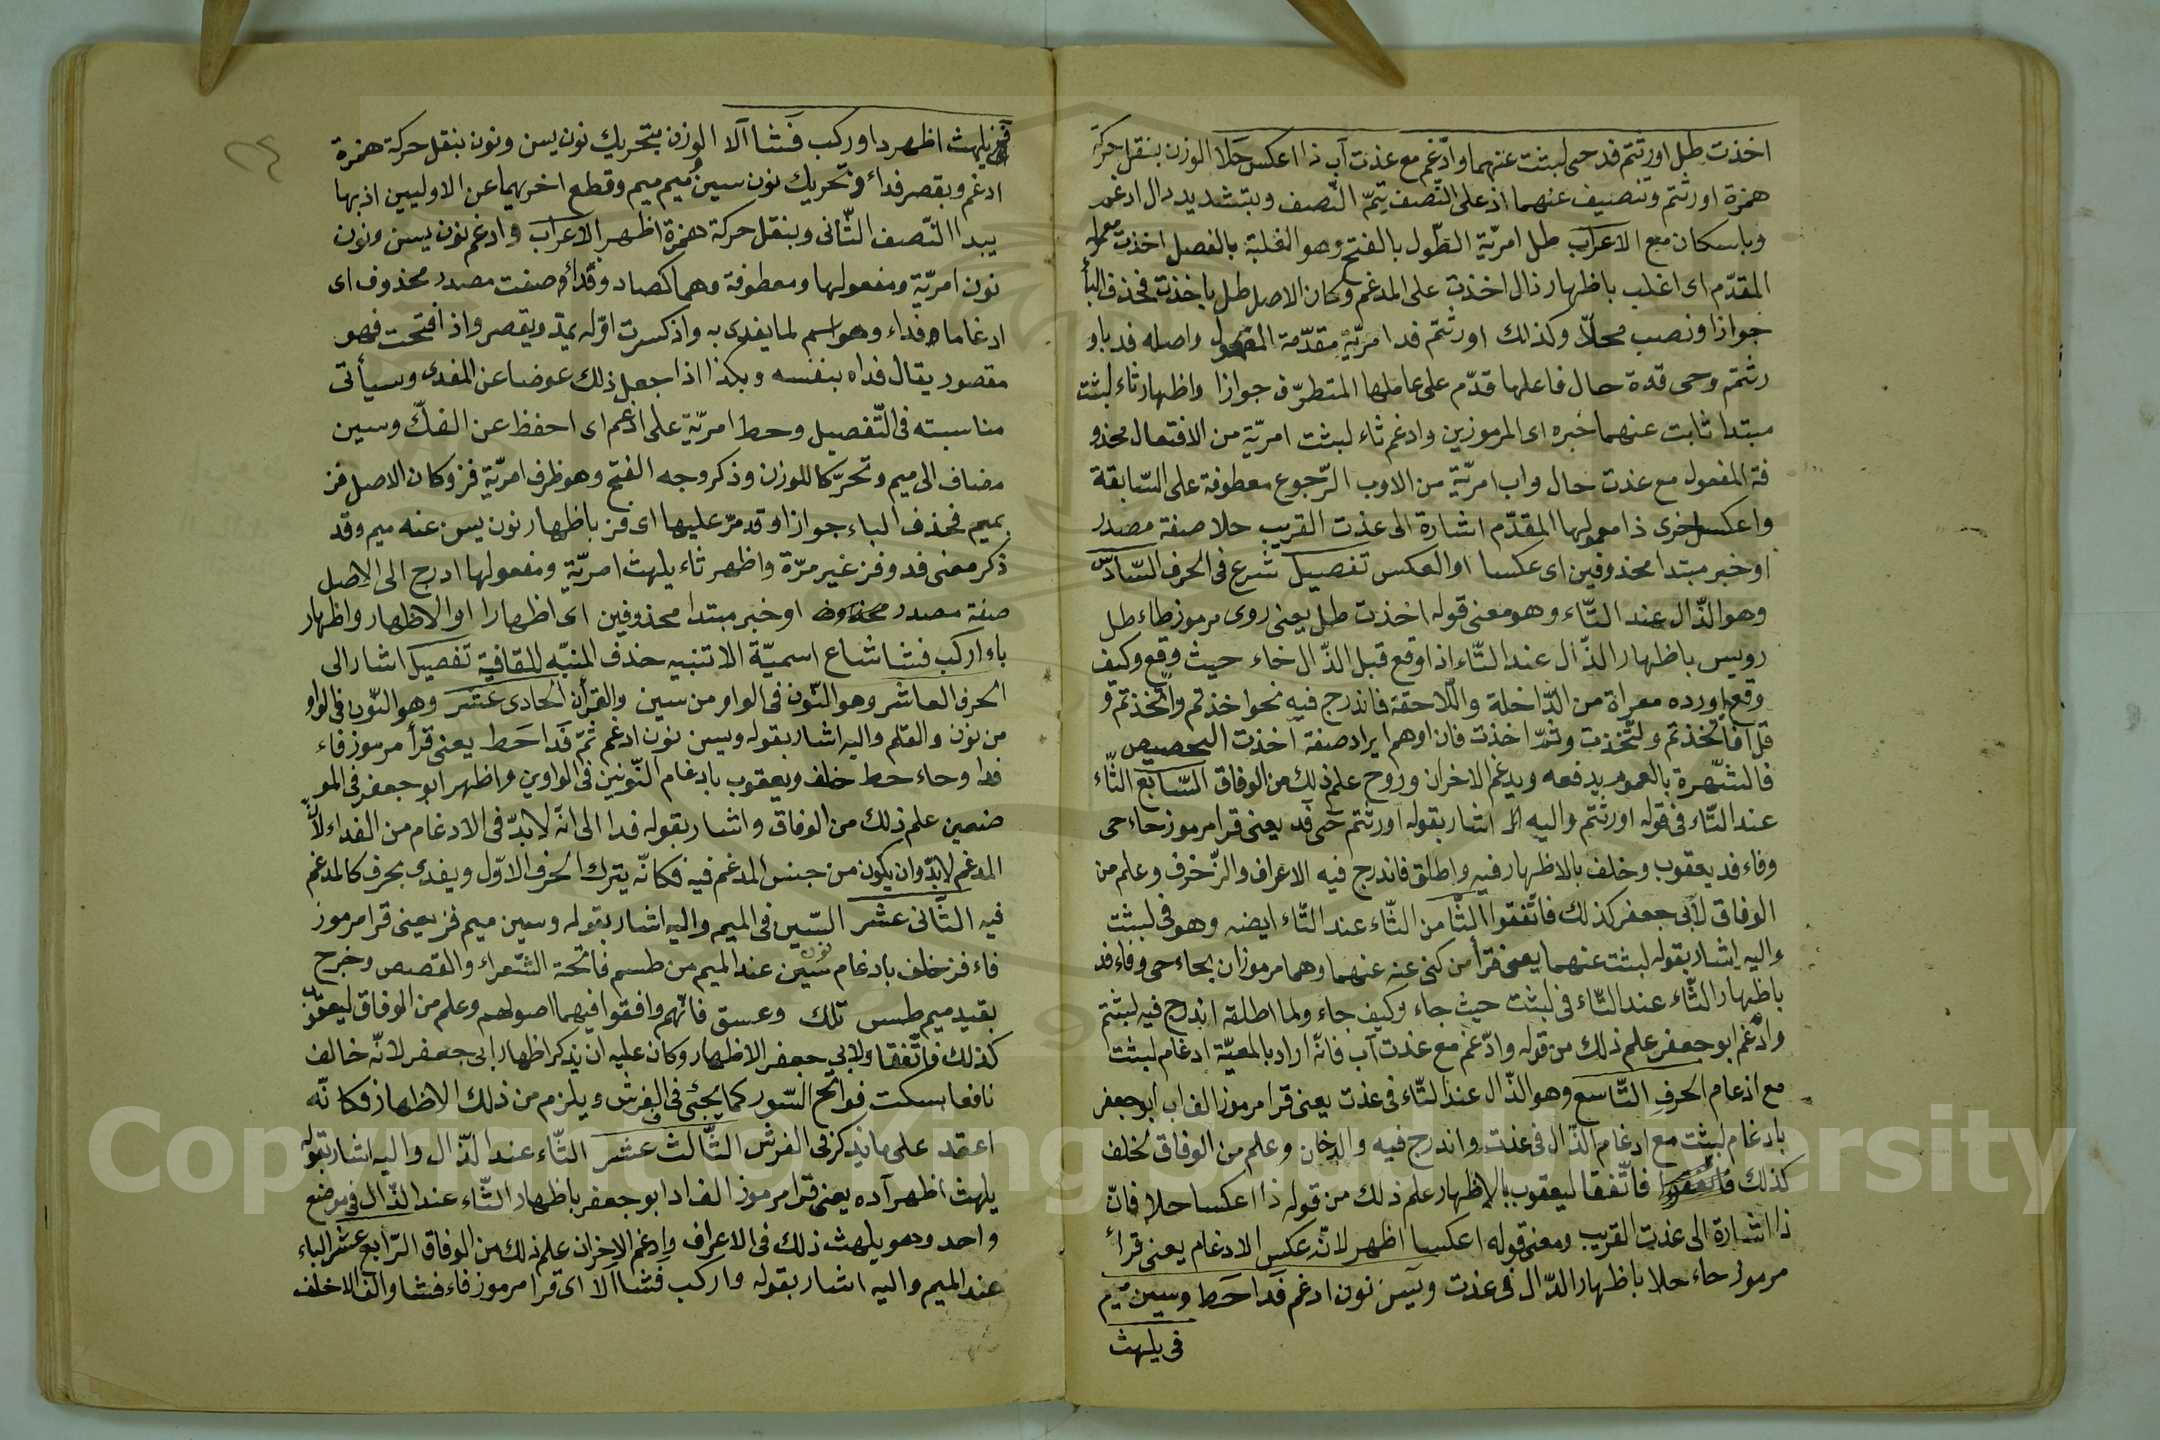 اخذت طل اورثتم فد حمى لبثت عنهما وادّغم مع عذت آب ذا اعكس حَلا الوزن بنقل حركة
همزة اورثتم وتنصيف عنهما اذ على النّصف يتمّ النّصف وبتشديد دال ادغم
وباسكان مع الاعراب طل امريّة الطّول بالفتح وهو الغلبة بالفصل اخذت معموله
المقدّم اى اغلب باظهار ذال اخذت على المدغم وكان الاصل طل باخذت فحذف البأ
جوازا ونصب محلّا وكذلك اورثتم فد امريّة مقدّمة المفعول واصله فد باو
رثتم وحمى قدة حال فاعلها قدّم على عاملها المتطرّف جوازا واظهار ثاء لبثت
مبتدا ثابت عنهما خبره اى المرموزين وادغم ثاء لبثت امريّة من الافتعال محذو
فة المفعول مع عذت حال واب امريّة من الاوب الرّجوع معطوفة على السّابقة
واعكس اخرى ذا معمولها المقدّم اشارة الى عذت القريب حلا صفة مصدر
او خبر مبتدا محذوفين اى عكسا او العكس تفصيل شرع فى الحرف السّادس
وهو الذّال عند التّاء وهو معنى قوله اخذت طل يعنى روى مرموز طاء طل
رويس باظهار الذّال عند التّاء اذا وقع قبل الذّال خاء حيث وقع وكيف
وقع اورده معراة من الدّاخلة واللّاحقة فاندرج فيه نحو اخذتم واتّخذتم و
قل افاتّخذتم ولتّخذت وثمّ اخذت فان اوهم ايراد صفة اخذت التخصيص
فالشّهرة بالعموم يدفعه ويدغم الاخران وروح علم ذلك من الوفاق السّابع الثّاء
عند التّاء فى قوله اورثتم واليه اشار بقوله اورثتم حمى فد يعنى قرا مرموز حاء حمى
وفاء فد يعقوب وخلف بالاظهار فيه واطلق فاندرج فيه الاعراف والزّخرف وعلم من
الوفاق لابى جعفر كذلك فاتّفقوا الثّامن الثّاء عند التّاء ايضه وهو فى لبثت
واليه اشار بقوله لبثت عنهما يعنى قرأ من كنى عنه عنهما وهما مرموزان بحاء حمى وفاء فد
باظهار الثّاء عند التّاء فى لبثت حيث جاء وكيف جاء ولما اطلقه اندرج فيه لبثتم
وادّغم ابو جعفر علم ذلك من قوله وادّغم مع عذت آب فانّه اراد بالمعيّة ادغام لبثت
مع ادغام الحرف التّاسع وهو الذّال عند التّاء فى عذت يعنى قرا مرموز الف اب ابو جعفر
بادغام لبثت مع ادغام الذّال فى عذت واندرج فيه والدخان وعلم من الوفاق لخلف
كذلك فاتّفقا ليعقوب بالاظهار علم ذلك من قوله ذا اعكسا حلا فانّ
ذا اشارة الى عذت القريب ومعنى قوله اعكسا اظهر لانّه عكس الادغام يعنى قرأ
مرموز حاء حلا باظهار الذّال فى عذت ويَس نون ادغم فَدا حَط وسين ميم
فى يلهث
فز يلهث اظهر د اوركب فَشا آلا الوزن بتحريك نون يس ونون بنقل حركة همزة
ادغم وبقصر فداء وتحريك نون سين ميم ميم وقطع اخريهما عن الاوليين اذ بها
يبدا النّصف الثّانى وبنقل حركة همزة اظهر الاعراب وادغم نون يس ونون
نون امريّة ومفعولها ومعطوفة وهما كصاد وقداء وصفت مصدر محذوف اى
ادغاما فداء وهو اسم لما يفدى به واذ كسرت اوّله يمدّ ويقصر واذ افتحت فهو
مقصور يقال فداه بنفسه وبكذا اذا جعل ذلك عوضا عن المفدى وسيأتى
مناسبته فى التّفصيل وحط امريّة على ادغم اى احفظ عن الفكّ وسين
مضاف الى ميم وتحرّكا للوزن وذكر وجه الفتح وهو ظرف امريّة فز وكان الاصل فز
بميم فحذف الباء جوازا وقد مرّ عليها اى فز باظهار نون يس عنه ميم وقد
ذكر معنى فد وفز غير مرّة واظهر ثاء يلهث امريّة ومفعولها ادرج الى الاصل
صفة مصدر محذوف او خبر مبتدا محذوفين اى اظهارا او الاظهار واظهار
باء اركب فشا شاع اسميّة الا تنبيه حذف المنبّه للقافية تفصيل اشار الى
الحرف العاشر وهو النّون فى الواو من سين والقرأن الحادى عشر وهو النّون فى الواو
من نون والقلم واليه اشار بقوله ويس نون ادغم ثمّ فَدا حَط يعنى قرأ مرموز فاء
فدا وحاء حط خلف ويعقوب بادغام النّونين فى الواوين واظهر ابو جعفر فى المو
ضعين علم ذلك من الوفاق واشار بقوله فدا الى انّه لا بدّ فى الادغام من الفداء لأنّ
المدغم لابدّ وان يكون من جنس المدغم فيه فكانّه يترك الحرف الاوّل ويفدى بحرف كالمدغم
فيه الثّانى عشر السّين فى الميم واليه اشار بقوله وسين ميم فز يعنى قرا مرموز
فاء فز خلف بادغام نون سين عند الميم من طسم فاتحة الشّعراء والقصص وخرج
بقيد ميم طس تلك وعسق فانّهم وافقوا فيهما اصولهم وعلم من الوفاق ليعقوب
كذلك فاتّفقا ولابى جعفر الاظهار وكان عليه ان يذكر اظهار ابى جعفر لانّه خالف
نافعا بسكت فواتح السّور كما يجئ فى الفرش ويلزم من ذلك الاظهار فكانّه
اعتمد على ما يذكر فى الفرش الثّالث عشر الثّاء عند الذّال واليه اشار بقوله
يلهث اظهر آده يعنى قرا مرموز الف اد ابو جعفر باظهار الثّاء عند الذّال فى موضع
واحد وهو يلهث ذلك فى الاعراف وادغم الاخران علم ذلك من الوفاق الرّابع عشر الباء
عند الميم واليه اشار بقوله واركب فَشا آلا اى قرا مرموز فاء فشا والف الا خلف
Copyright © King Saud University